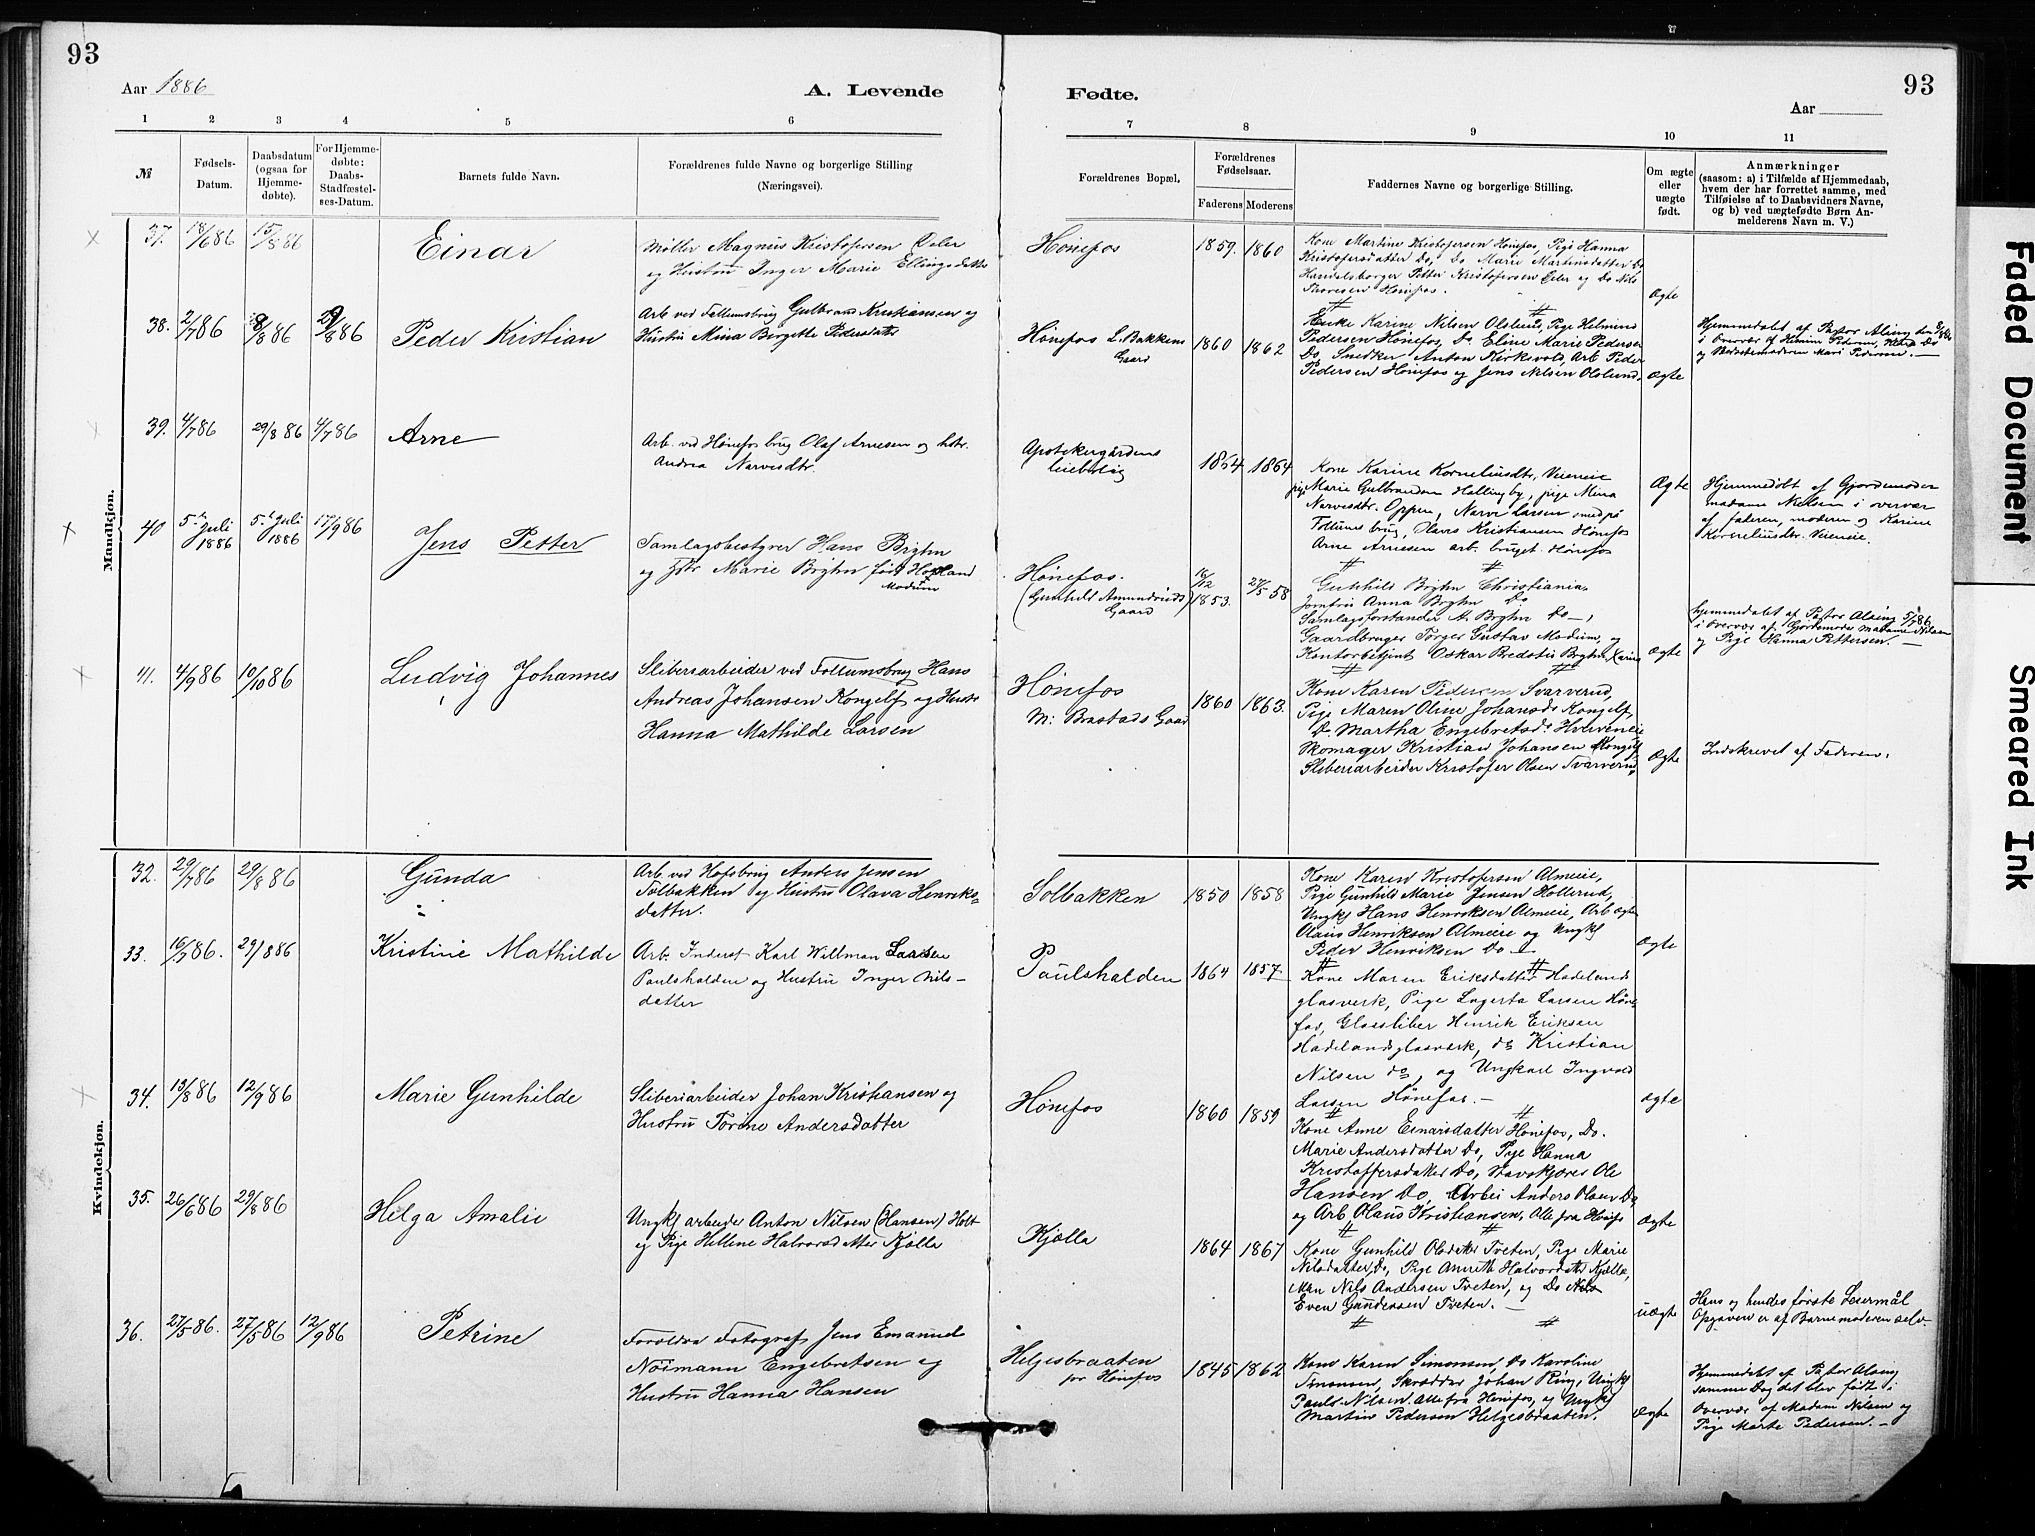 93
93
Aar 1886
A. Levende
Fødte.
Aar
1
2
3
4
5
6
7
8
9
10
11
№
Fødsels-
Datum.
Daabsdatum
(ogsaa for
Hjemme-
døbte).
For Hjemme-
døbte:
Daabs-
Stadfæstel-
ses-Datum.
Barnets fulde Navn.
Forældrenes fulde Navne og borgerlige Stilling
(Næringsvei).
Forældrenes Bopæl.
Forældrenes
Fødselsaar.
Faderens
Moderens
Faddernes Navne og borgerlige Stilling.
Om ægte
eller
uægte
født.
Anmærkninger
(saasom: a) i Tilfælde af Hjemmedaab,
hvem der har forrettet samme, med
Tilføielse af to Daabsvidners Navne,
og b) ved uægtefødte Børn An-
melderens Navn m. V.)
Mandkjøn.
37. 18/6 86 15/8 86 Einar
Møller Magnus Kristofersen
og Hustru Inger Marie Ellingsdatter
Hønefos 1859. 1860
Kone Martine Kristofersen Hønefos, Pige Hanna
Kristofersdatter Do, Do Marie Martinsdatter Do
Handelsborger Petter Kristofersen og Do Nils
Thoresen Hønefos.
Ægte
38. 2/7 86 8/8 86 29/8 86 Peder Kristian
Arb. ved Follumsbrug Gulbrand Kristiansen og
Hustru Mina Birgitte Pedersdatter
Hønefos L. Bakkens
Gaard
1860 1862
Enke Karine Nilsen Olslund, Pige Helmine
Pedersen Hønefos, Do Eline Marie Pedersen
Do, Snedker Anton Kirkevold, Arb Peder
Pedersen Hønefos og Jens Nilsen Olslund.
Ægte
Hjemmedøbt af Pastor Alsing
i Overvær af Pedersen,
og Marie Pedersen. —
39. 4/7 86 29/8 86 4/7 86 Arne
Arb. ved Hønefos brug Olaf Arnesen og hstr.
Andrea Narvesdtr.
Apothekergårdens
leiebolig
1864 1864
Kone Karine Korneliusdtr, Veieneie
pige Marie Gulbrandsen Hallingby, pige Mina
Narvesdtr. Oppen, Narve Larsen smed på
Follums brug, Hans Kristiansen Hønefos
Arne Arnesen arb. bruget Hønefos
Ægte
Hjemmedøbt af Gjordemoder
madame Nielsen i overvær
af faderen, moderen og Karine
Korneliusdtr. Veieneie.
40 5te Juli
1886
5te Juli
1886
17/9 86
Jens Petter
Samlagsbestyrer Hans Bryhn
og Hstr Marie Bryhn født Hovland
Modum
Hønefos.
(Gunhild Amundruds
Gaard)
16/12
1853.
27/5 58
Gunhild Bryhn Christiania.
Jomfru Anna Bryhn Do
Samlagsforstander A. Bryhn Do —,
Gaardbruger Torger Gustav Modum, og
Kontorbetjent Oskar Bredstu Bryhn,
Ægte
Hjemmedøbt af Pastor Alsing 5/7 86
i Overvær af Gjordemoder Madame Nilsen
og Pige Hanna Pettersen. —
41. 4/9 86 10/10 86 Ludvig Johannes
Sliberiarbeider ved Follumsbrug Hans
Andreas Johansen Kongelf og Hustr
Hanna Mathilde Larsen
Hønefos
M: Brostads Gaard
1860 1863.
Kone Karen Pedersen Svarverud,
Pige Maren Oline Johansd: Kongelf,
Do Martha Engebretsd: Hverveneie
Skomager Kristian Johansen Kongelf
Sliberiarbeider Kristofer Olsen Svarverud,
Ægte
Indskrevet af Faderen.
Kvindekjøn.
32. 29/7 86 29/8 86 Gunda
Arb. ved Hofsbrug Anders Jensen
Solbakken og Hustru Olava Henriks-
datter.
Solbakken 1850 1858
Kone Karen Kristofersen Almeie,
Pige Gunhild Marie Jensen Hollerud,
Ungk Hans Henriksen Almeie, Arb
Olaus Henriksen Almeie og Ungk
Peder Henriksen Do —
Ægte
33. 16/7 86. 29/8 86 Kristine Mathilde
Arb. Inderst Karl Willman Larsen
Paulshalden og Hustru Inger Nils-
datter
Paulshalden 1864 1857.
Kone Maren Eriksdatter Hadeland
glasverk, Pige Lagerta Larsen Høne-
fos, Glassliber Henrik Eriksen
Hadelandsglasværk, do Kristian
Nilsen do, og Ungkarl Ingvald
Larsen Hønefos. —
34. 13/8 86 12/9 86 Marie Gunhilde
Sliberiarbeider Johan Kristiansen og
Hustru Torine Andersdatter
Hønefos 1860 1859
ægte
Kone Anne Einarsdatter Hønefos, Do.
Marie Andersdatter Do, Pige Hanna
Kristoffersdatter Do, Ole
Hansen Do, Arbei Anders Olsen Do
og Arb Olaus Kristiansen, Alle fra Hønefos
Ægte
35. 26/6 86 29/8 86 Helga Amalie
Ungk arbeide Anton Nilsen (Hansen) Holt
og Pige Hellene Halvorsdatter Kjølla
Kjølla
1864 1867
Kone Gunhild Olsdatter Tveten, Pige Marie
Nilsdatter, Do, Pige Annette Halvorsdatter Kjølla,
Man Nils Andersen Tveten, og Do
Even Gundersen Tveten. —
uægte
Hans og hendes første Leiermål
Opgaven er af Barnemoderen selv.
36. 27/5 86. 27/5 86 12/9 86 Petrine
Foreldre Fotograf Jens Emanuel
Noimann Engebretsen og
Hustru Hanna Hansen
Helgesbraaten
pr Hønefos
1845 1862
Kone Karen Simonsen, Do Karoline
Simonsen, Skrædder Johan Ring, Ungk
Paul Nilsen. Alle fra Hønefos, og Ungk
Martin Pedersen Helgesbraaten.
Ægte
Hjemmedøbt af Pastor Alsing
samme Dag det blev født i
Overvær af Madam Nilsen og
Pige Marte Pedersen. —
Faded Document
Smeared Ink